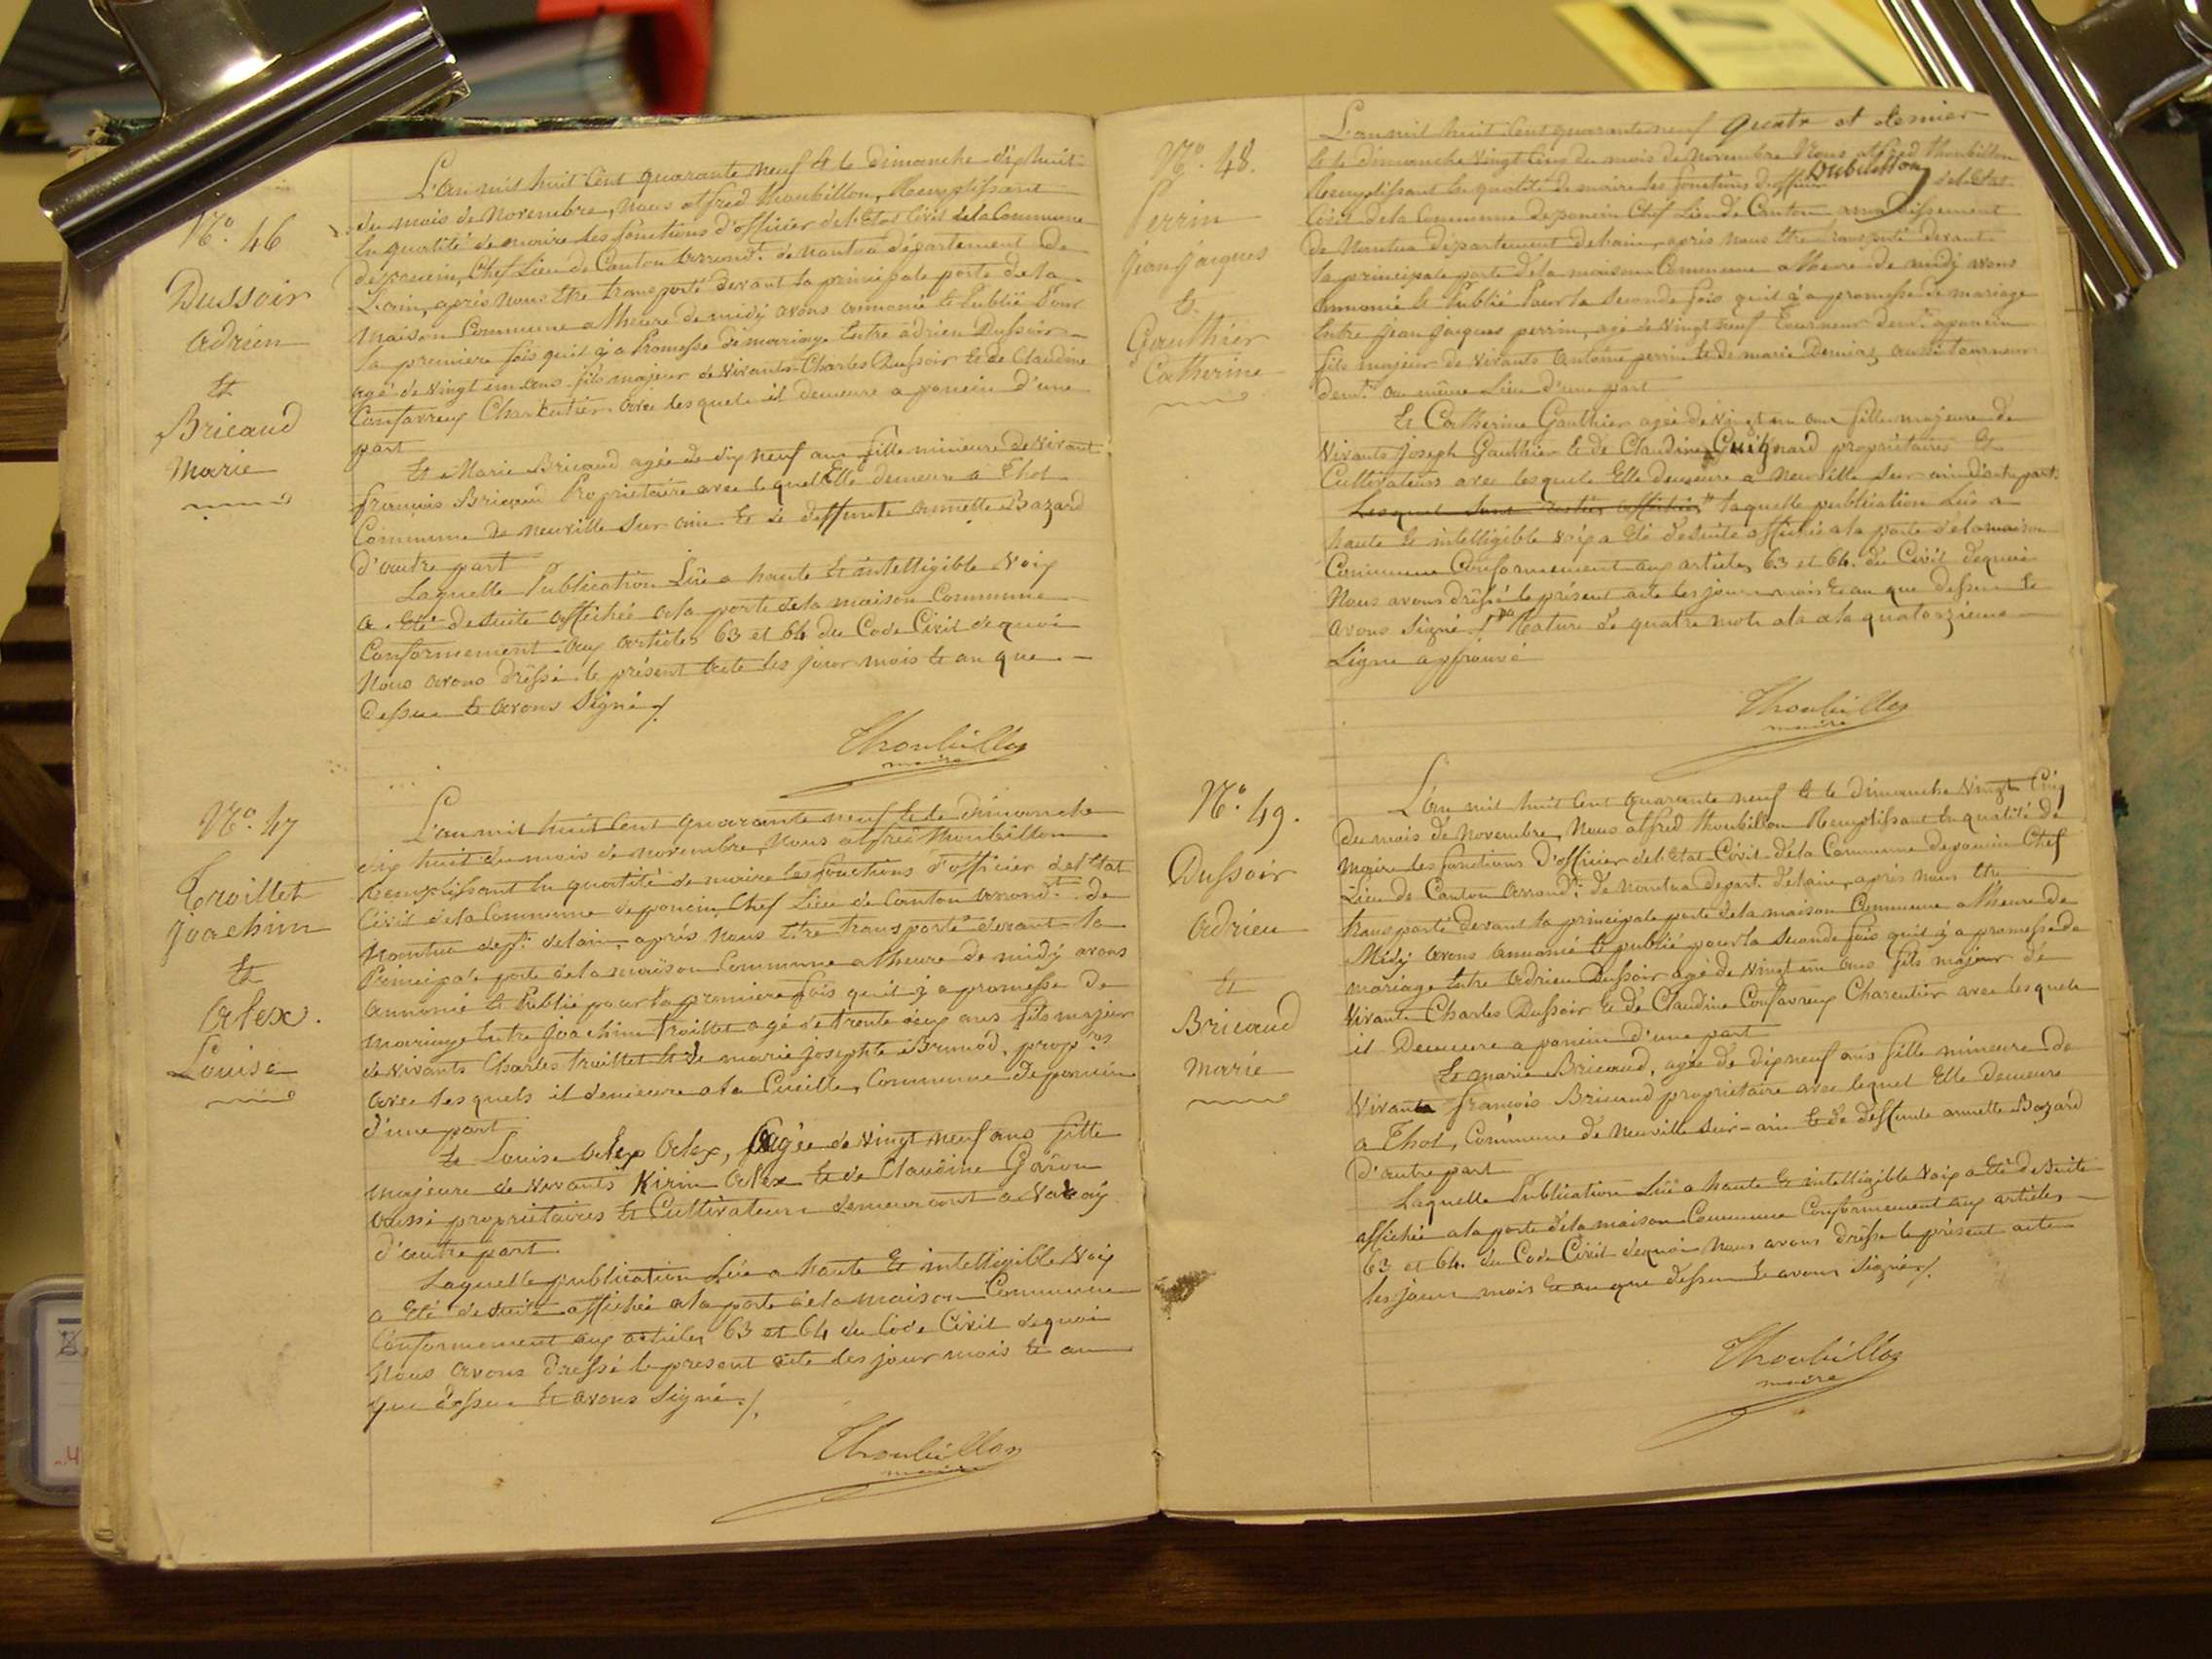 N.º 46
Dussoir
adrien
Et
Bricaud
Marie
L'an mil huit Cent quarante neuf Et le dimanche dix huit
du mois de Novembre, nous alfred thoubillon, Remplissant
En qualité de maire les fonctions d'officier de l'Etat Civil de la Commune
de poncin, Chef Lieu de Canton arrond.t de nantua département de
L'ain, après nous Etre transporté devant la principale porte de la
Maison Commune a l'heure de midy avons annoncé Et Publié Pour
la premiere fois qu'il y a Promesse de mariage Entre adrien Dussoir
agé de vingt un ans fils majeur de vivants Charles Dussoir Et de Claudine
Confavreux Charcutier avec lesquels il demeure a poncin d'une
part
Et Marie Bricaud agée de dix neuf ans fille mineure de vivant
françois Bricaud Proprietaire avec lequel Elle demeure a Thol
Commune de neuville sur ain Et de deffunte annette Bazard
d'autre part
Laquelle Publication Lüe a haute Et intelligible Voix
a Eté de suite affichée a la porte de la maison Commune
Conformement aux articles 63 et 64 du Code Civil de quoi
Nous avons dressé le présent acte les jour mois Et an que
dessus Et avons Signé /.
Thoubillon
maire
N.º 47
Troillet
joachim
Et
alex.
Louise
L'an mil huit Cent quarante neuf Et le dimanche
dix huit du mois de novembre, nous alfred thoubillon
Remplissant En qualité de maire les fonctions d'officier de l'Etat
Civil de la Commune de poncin, Chef Lieu de Canton arrond.t de
Nantua dep.t de lain, aprés nous Etre transporté devant la
Principale porte de la maison Commune a l'heure de midy avons
annoncé Et Publié pour la premiere fois qu'il y a promesse de
mariage Entre joachim troillet agé de trente deux ans fils majeur
de vivants Charles troillet Et de marie josephte Brunod, prop.res
avec lesquels il demeure a la Cueille, Commune de poncin
d'une part
Et Louise alex alex, agée de vingt neuf ans fille
majeure de vivants Kirin alex Et de Claudine Garon
aussi proprietaires Et Cultivateurs demeurant a
d'autre part
Laquelle publication Lüe a haute Et intelligible Voix
a Eté de suite affichée a la porte de la maison Commune
Conformement aux articles 63 et 64 du Code Civil de quoi
Nous avons dressé le present acte les jour mois Et an
que dessus Et avons Signé /.
Thoubillon
maire
quatre et dernier
Dubuisson
N.º 48.
Perrin
jean jacques
Et
Gauthier
Catherine
L'an mil huit Cent quarante neuf
Et le dimanche vingt Cinq du mois de novembre Nous alfred thoubillon
Remplissant En qualité de maire les fonctions d'officier de l'Etat
Civil de la Commune de poncin Chef Lieu de Canton arrondissement
de Nantua département de lain, aprés nous Etre transporté devant
la principale porte de la maison Commune a l'heure de midy avons
annoncé Et Publié Pour la Seconde fois qu'il y a promesse de mariage
Entre jean jacques perrin, agé de vingt neuf Tourneur dem.t a poncin
fils majeur de vivants antoine perrin Et de marie aussi tourneur
dem.t au même Lieu d'une part
Et Catherine Gauthier agée de vingt un ans fille majeure de
vivants joseph Gauthier Et de Claudine Guignard propriétaires Et
Cultivateurs avec lesquels Elle demeure a neuville sur ain d'autre part.
laquelle publication Lüe a
haute Et intelligible voix a Eté de suite affichée a la porte de la maison
Commune Conformement aux articles 63 et 64. du Civil de quoi
Nous avons dressé le présent acte les jour mois Et an que dessus Et
avons Signé /. Rature de quatre mots a la quatorzieme
Ligne approuvé
Thoubillon
maire
N.º 49.
Dussoir
adrien
Et
Bricaud
marie
L'an mil huit Cent quarante neuf Et le dimanche vingt Cinq
du mois de Novembre, Nous alfred thoubillon Remplissant En qualité de
maire les fonctions d'officier de l'Etat Civil de la Commune de poncin Chef
Lieu de Canton arrond.t de nantua depart. de lain, aprés nous Etre
transporté devant la principale porte de la maison Commune a l'heure de
Midy avons annoncé Et publié pour la Seconde fois qu'il y a promesse de
mariage Entre adrien Dussoir agé de vingt un ans fils majeur de
vivants Charles Dussoir Et de Claudine Confavreux Charcutier avec lesquels
il Demeure a poncin d'une part
Et marie Bricaud, agée de dix neuf ans fille mineure de
vivant françois Bricaud propriétaire avec lequel Elle demeure
a Thol, Commune de Neuville sur-ain Et de deffunte annette Bazard
d'autre part
Laquelle Publication Lüe a haute Et intelligible voix a Eté de suite
affichée a la porte de la maison Commune Conformement aux articles
63 et 64. du Code Civil de quoi Nous avons dressé le présent acte
les jour mois Et an que dessus Et avons Signé /.
Thoubillon
maire